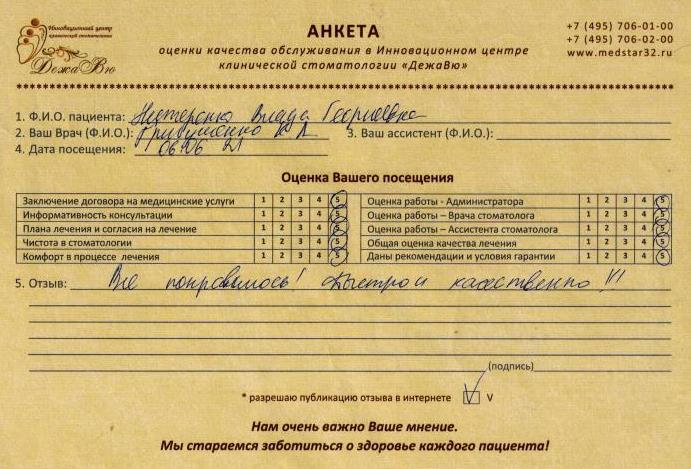 Инновационный центр
клинической стоматологии
ДежаВю
АНКЕТА
оценки качества обслуживания в Инновационном центре
клинической стоматологии «ДежаВю»
+7 (495) 706-01-00
+7 (495) 706-02-00
www.medstar32.ru
1. Ф.И.О. пациента: Влада Георгиевна
2. Ваш Врач (Ф.И.О.): 3. Ваш ассистент (Ф.И.О.):
4. Дата посещения: 06.06 21
Оценка Вашего посещения
Заключение договора на медицинские услуги 1 2 3 4 5 Оценка работы - Администратора 1 2 3 4 5
Информативность консультации 1 2 3 4 5 Оценка работы – Врача стоматолога 1 2 3 4 5
Плана лечения и согласия на лечение 1 2 3 4 5 Оценка работы – Ассистента стоматолога 1 2 3 4 5
Чистота в стоматологии 1 2 3 4 5 Общая оценка качества лечения 1 2 3 4 5
Комфорт в процессе лечения 1 2 3 4 5 Даны рекомендации и условия гарантии 1 2 3 4 5
5. Отзыв: Все понравилось! Быстро и качественно!!!
(подпись)
* разрешаю публикацию отзыва в интернете V
Нам очень важно Ваше мнение.
Мы стараемся заботиться о здоровье каждого пациента!